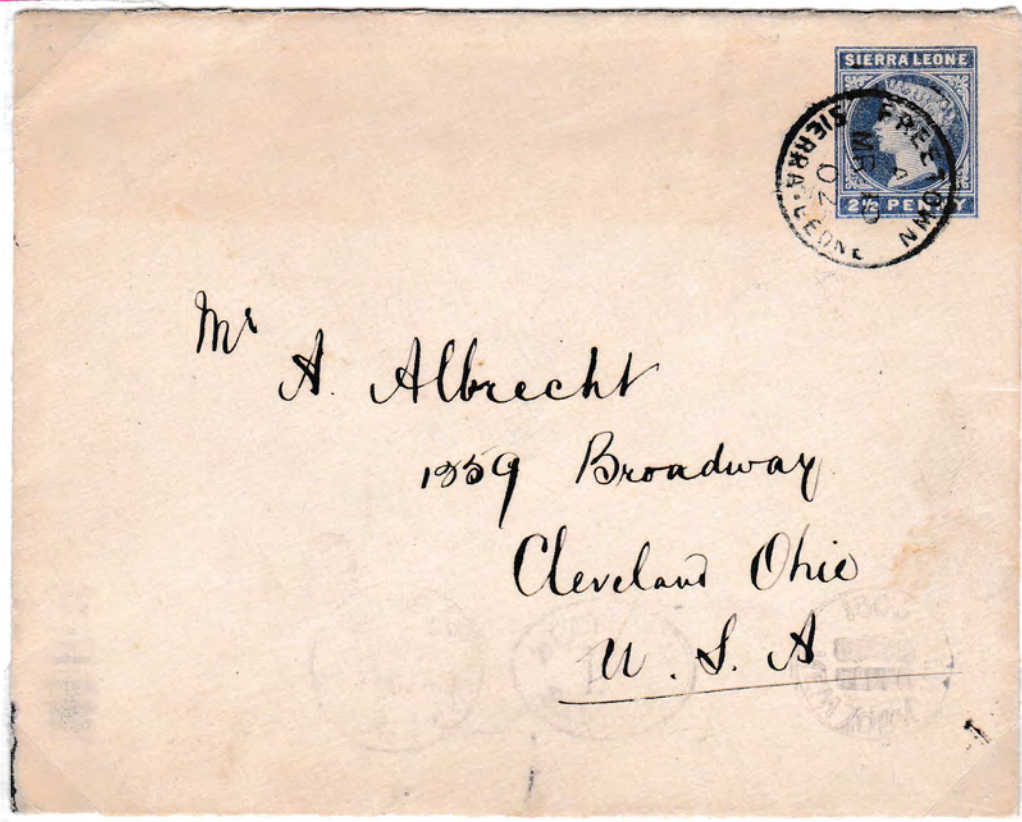 SIERRA LEONE
2½ PENNY
FREETOWN
SIERRA-LEONE
A
MR
Mr
A. Albrecht
1359 Broadway
Cleveland Ohio
U. S. A